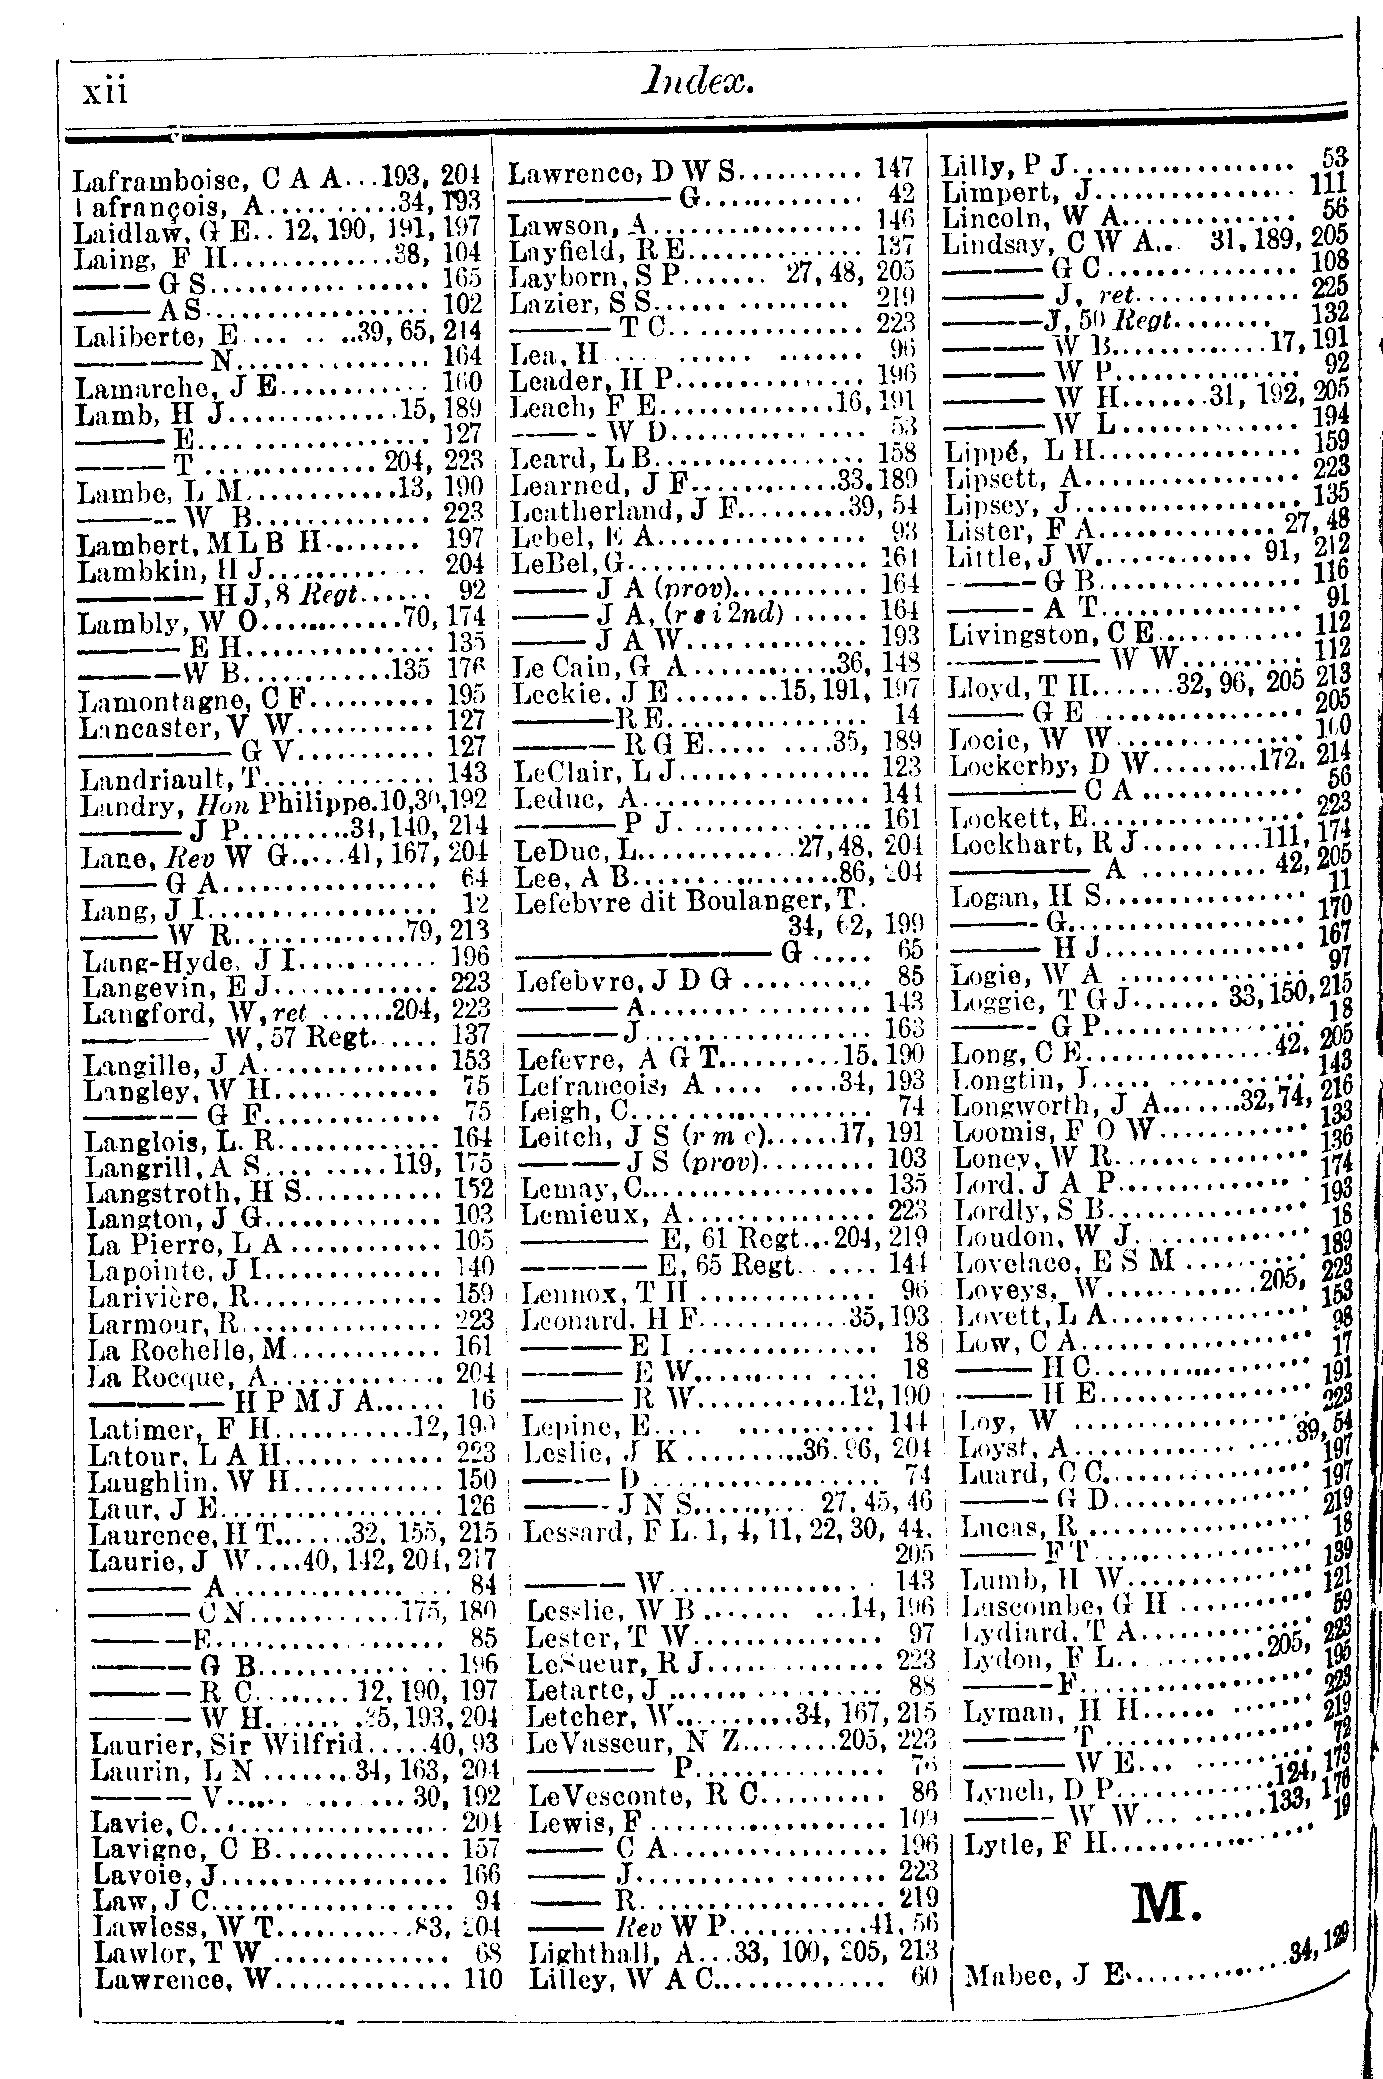 xii
Index.
Laframboise, C A A...193, 204
Lafrançois, A...........34, 193
Laidlaw, G E.. 12, 190, 191, 197
Laing, F H..............38, 104
——— G S................... 165
——— A S................... 102
Laliberte, E ... .. ..39, 65, 214
————— N................ 164
Lamarche, J E............ 160
Lamb, H J..............15, 189
———— E................... 127
———— T ............... 204, 223
Lambe, L M............13, 190
———— W B.............. 223
Lambert, M L B H........ 197
Lambkin, H J............. 204
————— H J, 8 Regt...... 92
Lambly, W O............70, 174
———— E H............... 135
————W B............135 176
Lamontagne, C F.......... 195
Lancaster, V W........... 127
—————— G V........... 127
Landriault, T.............. 143
Landry, Hon Philippe.10,30,192
———— J P.........34, 140, 214
Lane, Rev W G.....41, 167, 204
——— G A................. 64
Lang, J I.................. 12
——— W R..............79, 213
Lang-Hyde, J I........... 196
Langevin, E J............. 223
Langford, W, ret ......204, 223
————— W, 57 Regt...... 137
Langille, J A.............. 153
Langley, W H............. 75
————— G F............. 75
Langlois, L. R............. 164
Langrill, A S.... ......119, 175
Langstroth, H S........... 152
Langton, J G.............. 103
La Pierre, L A ............ 105
Lapointe, J I.............. 140
Larivière, R............... 159
Larmour, R................ 223
La Rochelle, M............ 161
La Rocque, A.............. 204
—————— H P M J A...... 16
Latimer, F H...........12, 190
Latour, L A H............ 223
Laughlin, W H............ 150
Laur, J E................. 126
Laurence, H T.......32, 155, 215
Laurie, J W....40, 142, 204, 217
———— A ................. 84
———— C N............175, 180
————E.................. 85
———— G B.............. 196
———— R C........ 12, 190, 197
———— W H....... .35, 193, 204
Laurier, Sir Wilfrid.....40, 93
Laurin, L N .......34, 163, 204
———— V............... 30, 192
Lavie, C................... 204
Lavigne, C B.............. 157
Lavoie, J.................. 166
Law, J C................... 94
Lawless, W T...........83, 204
Lawlor, T W .............. 68
Lawrence, W.............. 110
Lawrence, D W S.......... 147
—————— G............. 42
Lawson, A................. 146
Layfield, R E.............. 137
Layborn, S P....... 27, 48, 205
Lazier, S S................ 219
———— T C............... 223
Lea, H .................... 96
Leader, H P............... 196
Leach, F E..............16, 191
———— W D.............. 53
Leard, L B................ 158
Learned, J F............33, 189
Leatherland, J F.........39, 54
Lebel, E A................ 93
LeBel, G................... 161
——— J A (prov)........... 164
——— J A, (r s i 2nd) ...... 164
——— J A W............... 193
Le Cain, G A............36, 148
Leckie, J E ........15, 191, 197
————R E................ 14
———— R G E..... ....35, 189
LeClair, L J................ 123
Leduc, A.................. 141
———— P J................ 161
LeDuc, L.............27, 48, 204
Lee, A B.................86, 204
Lefebvre dit Boulanger, T.
34, 62, 199
—————————— G ..... 65
Lefebvre, J D G ........... 85
————— A................. 143
————— J.................. 163
Lefevre, A G T..........15, 190
Lefrancois, A .... ....34, 193
Leigh, C................... 74
Leitch, J S (r m c)......17, 191
———— J S (prov)......... 103
Lemay, C................... 135
Lemieux, A................ 223
————— E, 61 Regt...204, 219
————— E, 65 Regt....... 144
Lennox, T H .............. 96
Leonard, H F............35, 193
———— E I ............... 18
———— E W............... 18
———— R W............12, 190
Lepine, E.... ........... 144
Leslie, J K ..........36, 96, 204
———— D .................. 74
———— J N S......... 27, 45, 46
Lessard, F L. 1, 4, 11, 22, 30, 44,
205
———— W................. 143
Lesslie, W B ....... ...14, 196
Lester, T W............... 97
LeSueur, R J.............. 223
Letarte, J ................. 88
Letcher, W..........34, 167, 215
LeVasseur, N Z........205, 223
—————— P.............. 76
LeVesconte, R C.......... 86
Lewis, F .................. 109
——— C A................. 196
——— J................... 223
——— R................... 219
——— Rev W P...........41, 56
Lighthall, A...33, 100, 205, 213
Lilley, W A C.............. 60
Lilly, P J.................. 53
Limpert, J................ 111
Lincoln, W A.............. 56
Lindsay, C W A... 31, 189, 205
———— G C............... 108
———— J, ret............. 225
————J, 50 Regt........ 132
———— W B............17, 191
———— W P............... 92
———— W H.......31, 192, 205
———— W L............... 194
Lippé, L H................ 159
Lipsett, A.................. 223
Lipsey, J................... 135
Lister, F A.............. 27, 48
Little, J W............. 91, 212
———— G B................ 116
———— A T................ 91
Livingston, C E............ 112
—————— W W.......... 112
Lloyd, T H.......32, 96, 205 213
——— G E ................ 205
Locie, W W............... 100
Lockerby, D W.........172, 214
—————— C A ............ 56
Lockett, E................. 223
Lockhart, R J..........111, 174
————— A .......... 42, 205
Logan, H S................ 11
————G................... 170
———— H J................ 167
Logie, W A ............... 97
Loggie, T G J....... 33, 150, 215
———— G P................ 18
Long, C E...............42, 205
Longtin, J................. 143
Longworth, J A.......32, 74, 216
Loomis, F O W............ 133
Loney, W R................ 136
Lord, J A P................ 174
Lordly, S B................ 193
Loudon, W J.............. 18
Lovelace, E S M .......... 189
Loveys, W.............205, 223
Lovett, L A................ 153
Low, C A.................. 98
——— H C................. 17
——— H E................. 191
Loy, W ................... 223
Loyst, A................39, 54
Luard, C C................ 197
———— G D............... 197
Lucas, R .................. 219
——— F T................. 18
Lumb, H W................ 139
Luscombe, G H ........... 121
Lydiard, T A............... 59
Lydon, F L.............205, 223
————F................... 195
Lyman, H H............... 223
———— T ................. 219
———— W E............... 72
Lynch, D P.............124, 173
———— W W... .......133, 176
Lytle, F H................. 19
M.
Mabee, J E.............34, 129